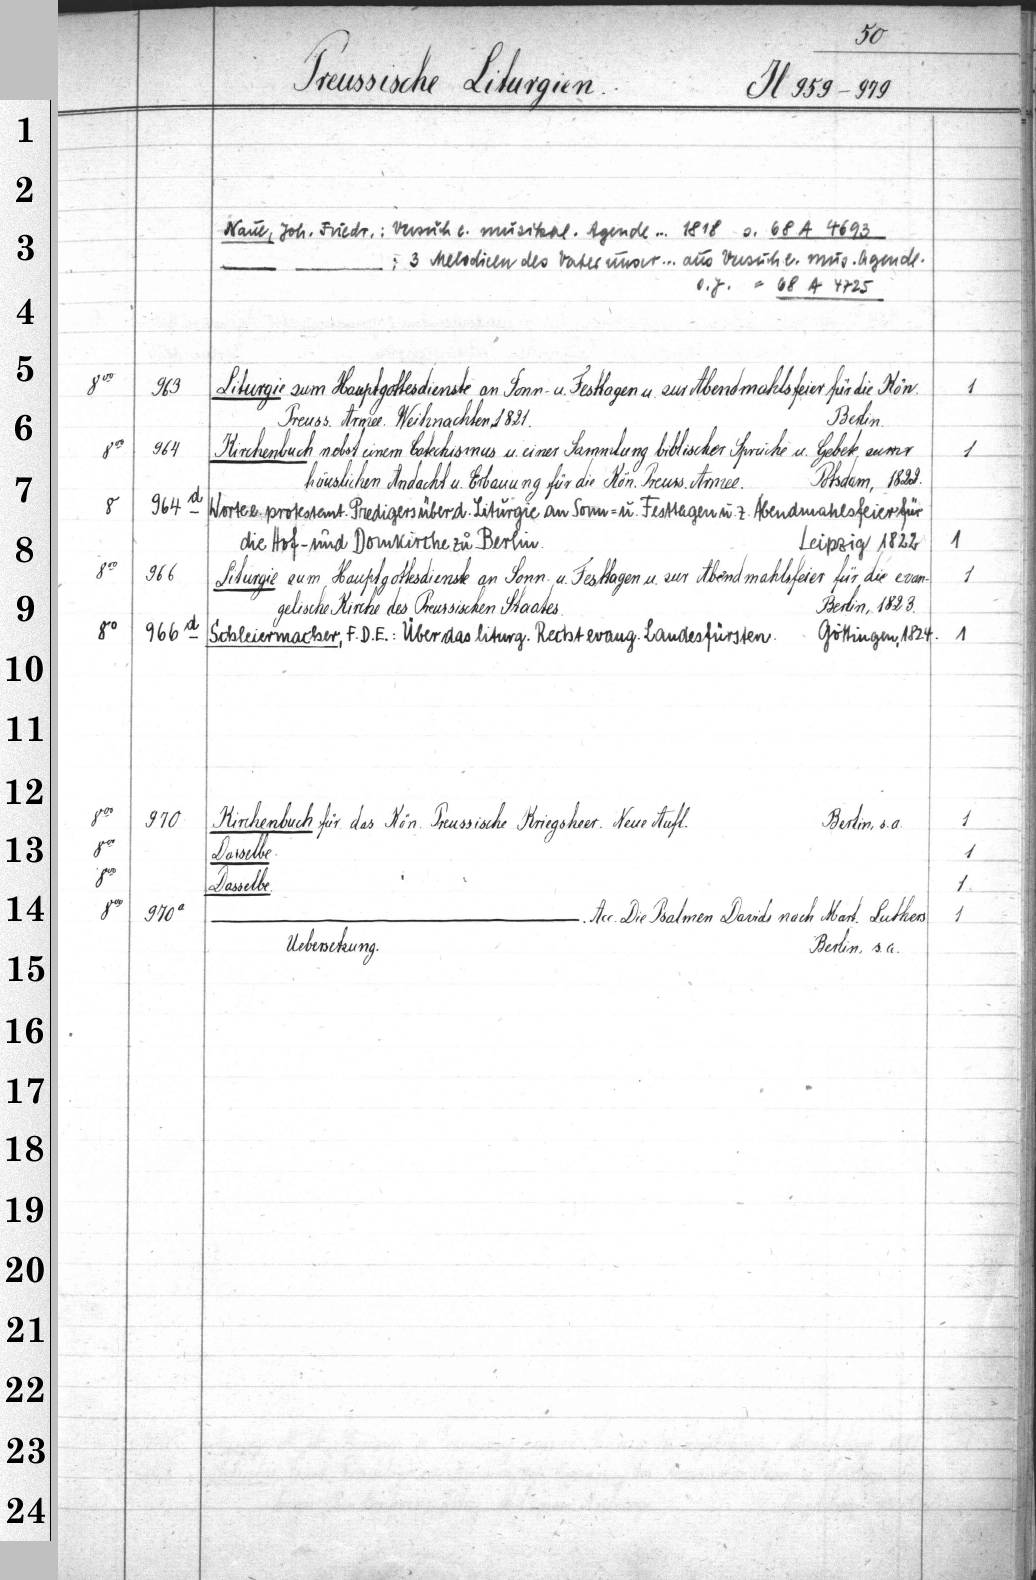 50
Preussische Liturgien. H 959-979
1
2
3
4
5
6
7
8
9
10
11
12
13
14
15
16
17
18
19
20
21
22
23
24
Naue, Joh. Friedr.: Versuch e. musikal. Agende... 1818 s. 68 A 4693
; 3 Melodieen des Vater unser... aus Versuch e. mus. Agende.
o.J. = 68 A 4725
8vo 963 Liturgie zum Hauptgottesdienste an Sonn- u. Festtagen u. zur Abendmahlsfeier für die Kön. 1
Preuss. Armee. Weihnachten, 1821. Berlin.
8vo 964 Kirchenbuch nebst einem Catechismus u. einer Sammlung biblischer Sprüche u. Gebete zur 1
häuslichen Andacht u. Erbauung für die Kön. Preuss. Armee. Potsdam, 1822.
8 964d Worte e. protestant. Predigers über d. Liturgie an Sonn- u. Festtagen u. z. Abendmahlsfeier für
die Hof- und Domkirche zu Berlin. Leipzig 1822 1
8vo 966 Liturgie zum Hauptgottesdienste an Sonn- u. Festtagen u. zur Abendmahlsfeier für die evan- 1
gelische Kirche des Preussischen Staates. Berlin, 1823.
8o 966d Schleiermacher, F.D.E.: Über das liturg. Recht evang. Landesfürsten. Göttingen, 1824. 1
8vo 970 Kirchenbuch für das Kön. Preussische Kriegsheer. Neue Aufl. Berlin, s.a. 1
8vo Dasselbe. 1
8vo Dasselbe. 1.
8vo 970a . Acc. Die Psalmen Davids nach Mart. Luthers 1
Uebersetzung. Berlin, s.a.